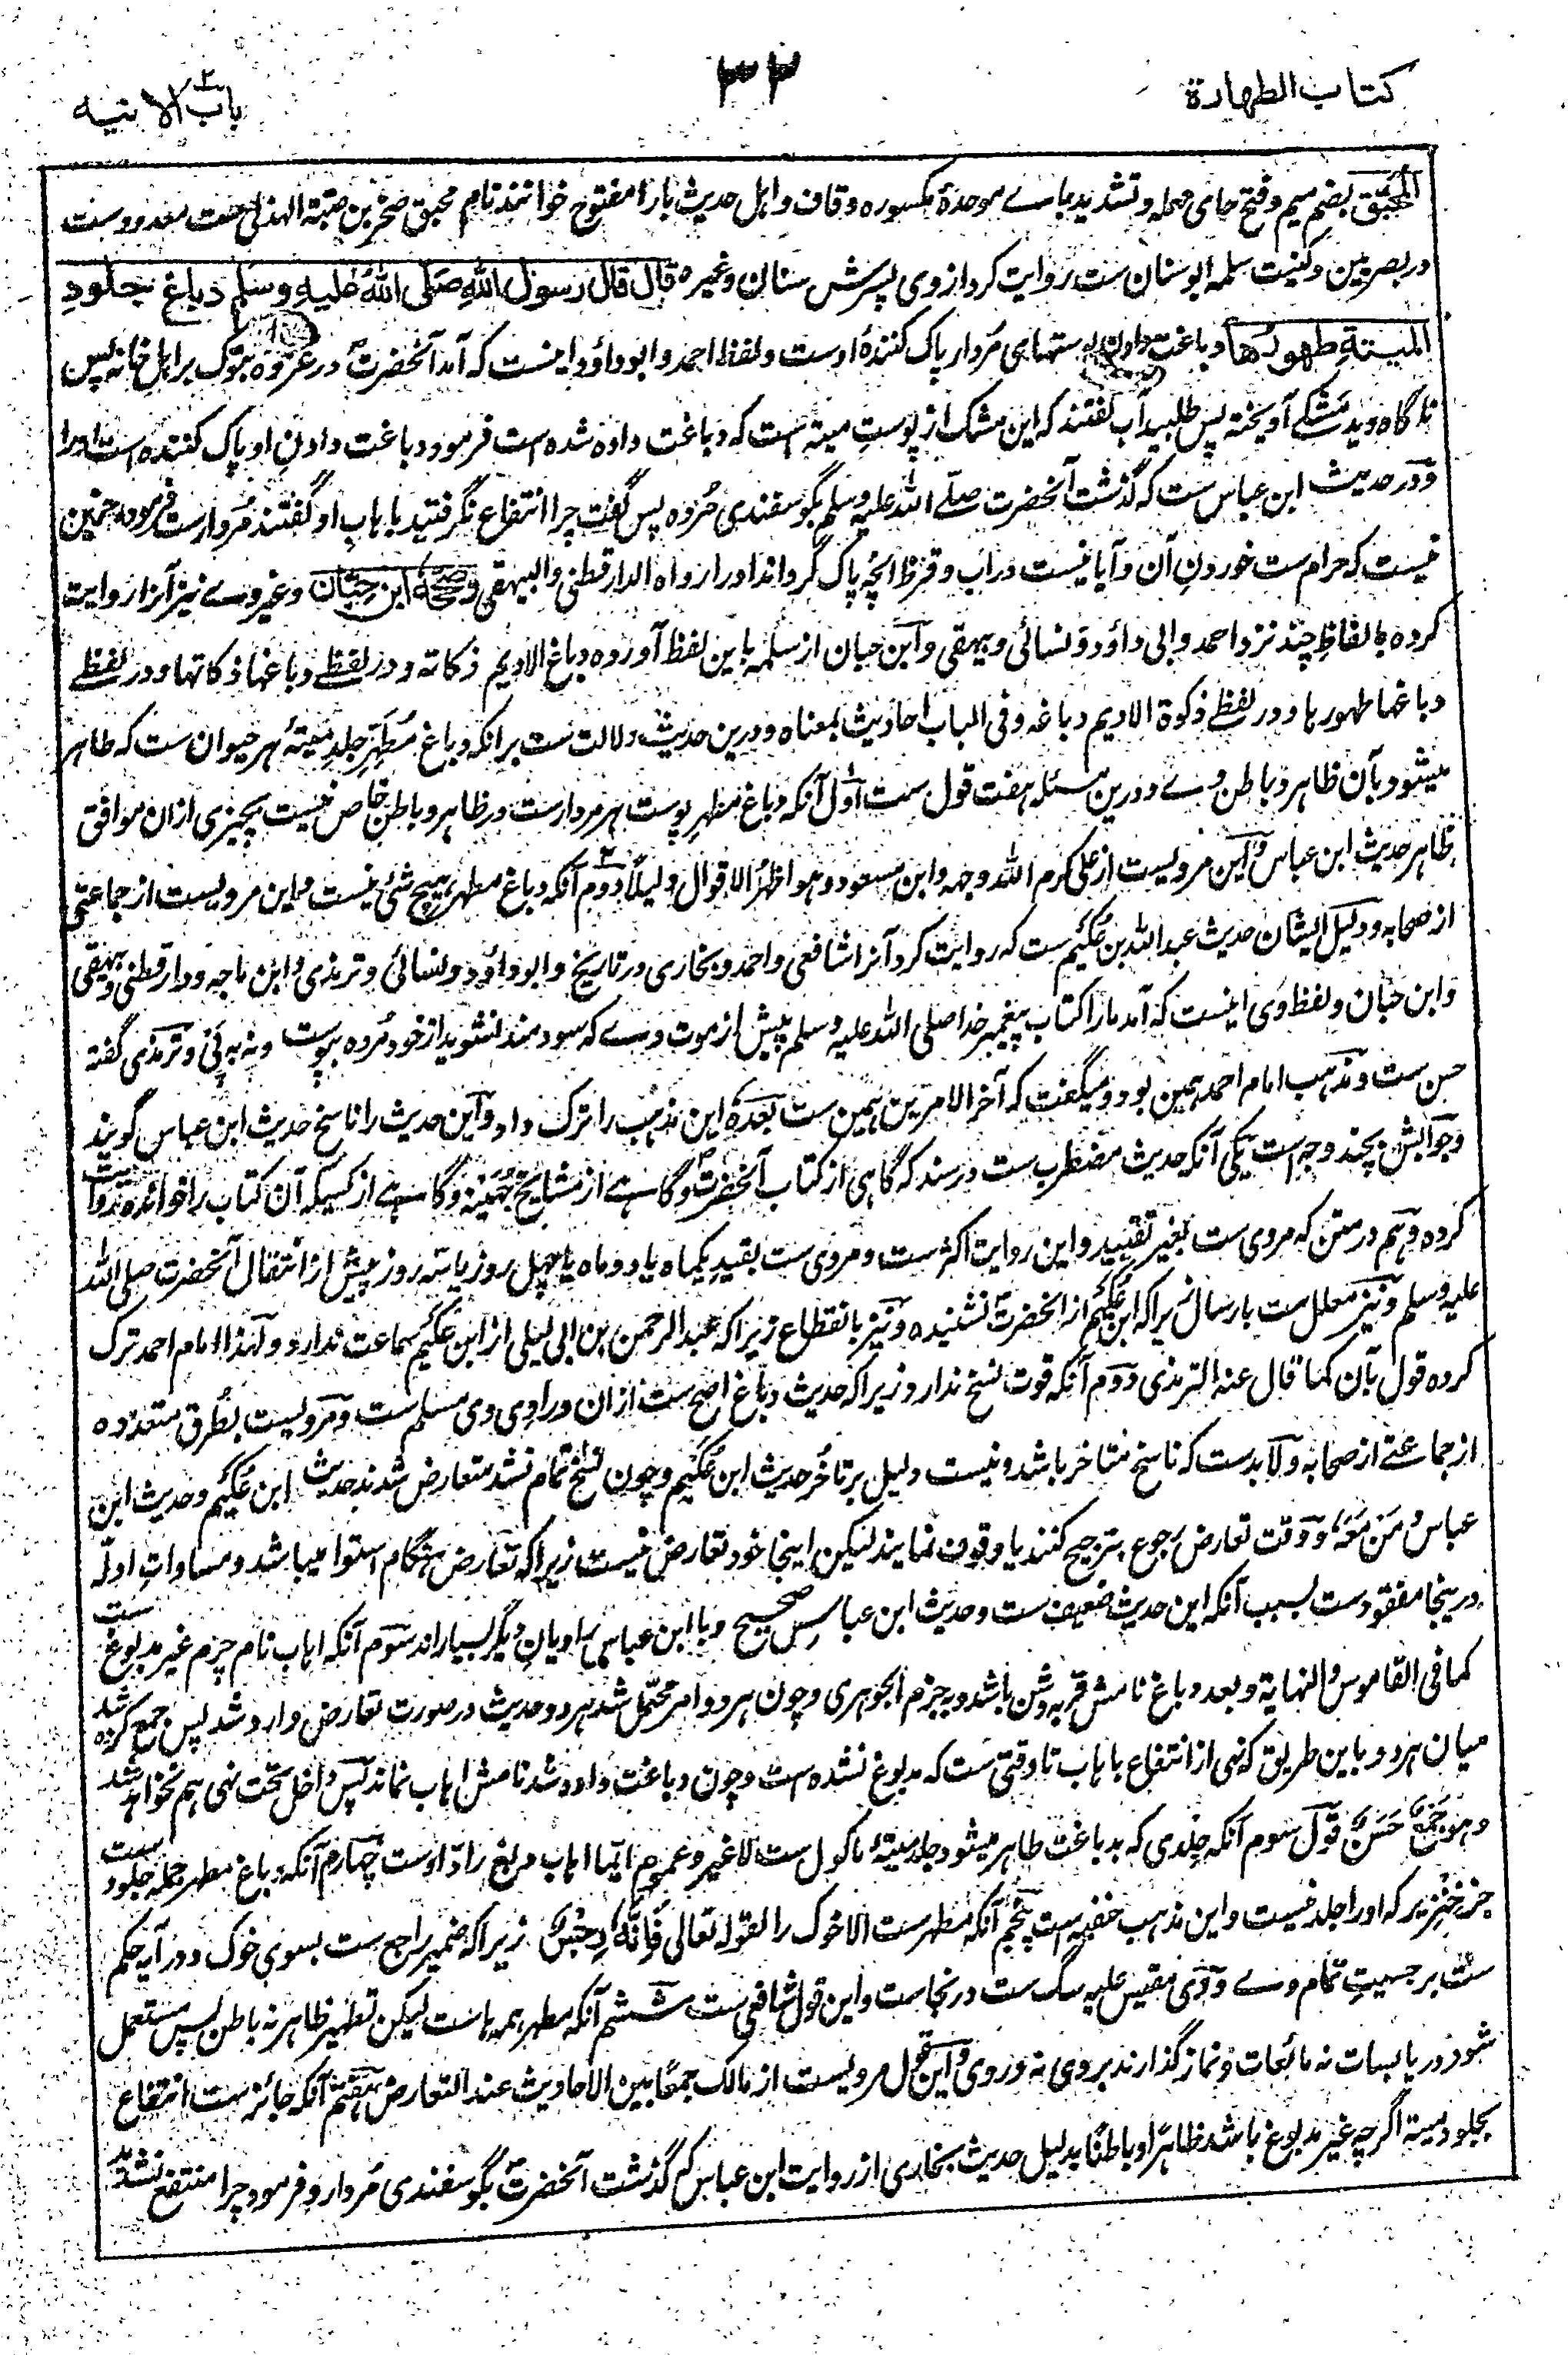 کتاب الطهارة
۳۳
باب الانیه
المُحبَّق بضم میم و فتح حای مهمله و تشدید بای موحدهٔ مکسوره و قاف و اہل حدیث با را مفتوح خوانند نام محبق صخر بن عتبة الهذلی ست معدودست
در بصریین و کنیت سلمه ابو سنان ست روایت کرد از وی پسرش سنان و غیره قال قال رسول الله صلی الله علیه وسلم دباغ جلود
المیتة طهورها دباغت دادن پوستهای مُردار پاک کنندهٔ اوست و لفظ احمد و ابو داؤد اینست که آمد آنحضرتؐ در غزوه تبوک بر اہل خانه پس
ناگاه دید مَشکے آویخته پس طلبید آب گفتند که این مشک از پوستِ میته است که دباغت داده شده است فرمود دباغت دادنِ او پاک کننده است او را
و در حدیث ابن عباس ست که گذشت آنحضرت صلے الله علیہ وسلم بگوسفندی مُرده پس گفت چرا انتفاع نگرفتید باہابِ او گفتند مُردار ست فرمود ہمین
نیست که حرام ست خوردنِ آن و آیا نیست در آب و قرظ انچه پاک گرداند او را رواه الدار قطنی و البیهقی و صححه ابن حِبّان و غیر وے نیز آنرا روایت
کرده بالفاظِ چند نزد احمد و ابی داؤد و نسائی و بیهقی و ابن حبان از سلمه باین لفظ آورده دباغ الادیم ذکاته و در لفظے دباغها ذکاتها و در لفظے
دباغها طهورها و در لفظے ذکوة الادیم دباغه و فی الباب احادیث بمعناه و درین حدیث دلالت ست برانکه دباغ مُطَهِّرِ جلدِ میتهٔ هر حیوان ست که طاهر
میشود بآن ظاهر و باطن وے و درین مسئله ہفت قول ست اول آنکه دباغ مطهرِ پوست ہر مردارست در ظاهر و باطن خاص نیست بچیزی ازان موافق
ظاهر حدیث ابن عباس و این مرویست از علی کرم الله وجهه و ابن مسعود و هو اظهرُ الاقوال دلیلاً دوم آنکه دباغ مطهر ہیچ شئی نیست و این مرویست از جماعتی
از صحابه و دلیل ایشان حدیث عبدالله بن عُکَیم ست که روایت کرد آنرا شافعی و احمد و بخاری در تاریخ و ابو داؤد و نسائی و ترمذی و ابن ماجه و دارقطنی و بیهقی
و ابن حبان و لفظ وی اینست که آمد ما را کتاب پیغمبر خدا صلی الله علیه وسلم پیش از موت وے که سودمند نشوید از خود مُرده بپوست و نه به پئی و ترمذی گفته
حسن ست و مذہب امام احمد ہمین بود و میگفت که آخر الامرین ہمین ست بعدهٔ این مذہب را ترک داد و این حدیث را ناسخ حدیث ابن عباس گویند
و جوابش بچند وجہ است یکی آنکه حدیث مضطرب ست در سند که گاہی از کتاب آنحضرتؐ و گاہے از مشایخ جُهَینه و گاہے از کسیکه آن کتاب را خوانده روایت
کرده و ہم در متن که مروی ست بغیر تقیید و این روایت اکثر ست و مروی ست بقید یکماه یا دو ماه یا چہل روز یا سہ روز پیش از انتقال آنحضرت صلی الله
علیه وسلم و نیز معلل ست بارسال زیراکه ابن عُکَیم از انحضرتؐ نشنیده و نیز بانقطاع زیراکه عبدالرحمن بن ابی لیلی از ابن عکیم سماعت ندارد و لهذا امام احمد ترک
کرده قول بآن کما قال عنه الترمذی دوم آنکه قوت نسخ ندارد زیراکه حدیث دباغ اصح ست ازان و راوی وی مسلم ست و مرویست بطُرق متعدده
از جماعتے از صحابه و لابدست که ناسخ متاخر باشد و نیست دلیل بر تاخُر حدیث ابن عُکَیم و چون نسخ تمام نشد متعارض شدند حدیث ابن عُکَیم و حدیث ابن
عباس و مَن مَعَهُ و وقت تعارض رجوع بترجیح کنند یا وقوف نمایند لیکن اینجا خود تعارض نیست زیراکه تعارض ہنگام استوا میباشد و مساواتِ ادلّه
درینجا مفقودست بسبب آنکه این حدیث ضعیف ست و حدیث ابن عباس صحیح و با ابن عباس راویانِ دیگر بسیار اند سوم آنکه اہاب نام چرم غیر مدبوغ ست
کما فی القاموس و النهایة و بعد دباغ نامش قربه و شن باشد و به جزم الجوهری و چون ہر دو امر محتمل شد ہر دو حدیث در صورت تعارض وارد شد پس جمع کرده شد
میان ہر دو باین طریق که نہی از انتفاع باہاب تا وقتی ست که مدبوغ نشده است و چون دباغت داده شد نامش اہاب نماند پس داخل تحت نہی ہم نخواہد شد
و هو جَمْعٌ حَسَنٌ قول سوم آنکه جلدی که بدباغت طاهر میشود جلد میتهٔ ماکول ست لا غیر و عموم ایما اہاب دبغ رادّ اوست چہارم آنکه دباغ مطهر جمله جلود ست
جز خنزیر که او را جلد نیست و این مذہب حنفیه ست پنجم آنکه مطهرست الا خوک را لقوله تعالی فَإِنَّهٗ رِجْسٌ زیراکه ضمیر راجع ست بسوی خوک و در آیه حکم
ست بر رجسیتِ تمام وے و وی مقیس علیه سگ ست در نجاست و این قول شافعی ست ششم آنکه مطهر ہمه ہاست لیکن تطهیر ظاهر نه باطن پس مستعمل
شود در یابسات نه مائعات و نماز گذارند بر وی نه در وی و این قول مرویست از مالک جمعًا بین الاحادیث عند التعارض ہفتم آنکه جائز ست انتفاع
بجلود میته اگرچه غیر مدبوغ باشد ظاهرًا و باطنًا بدلیل حدیث بخاری از روایت ابن عباس که گذشت آنحضرتؐ بگوسفندی مُردار و فرمود چرا منتفع نشدید